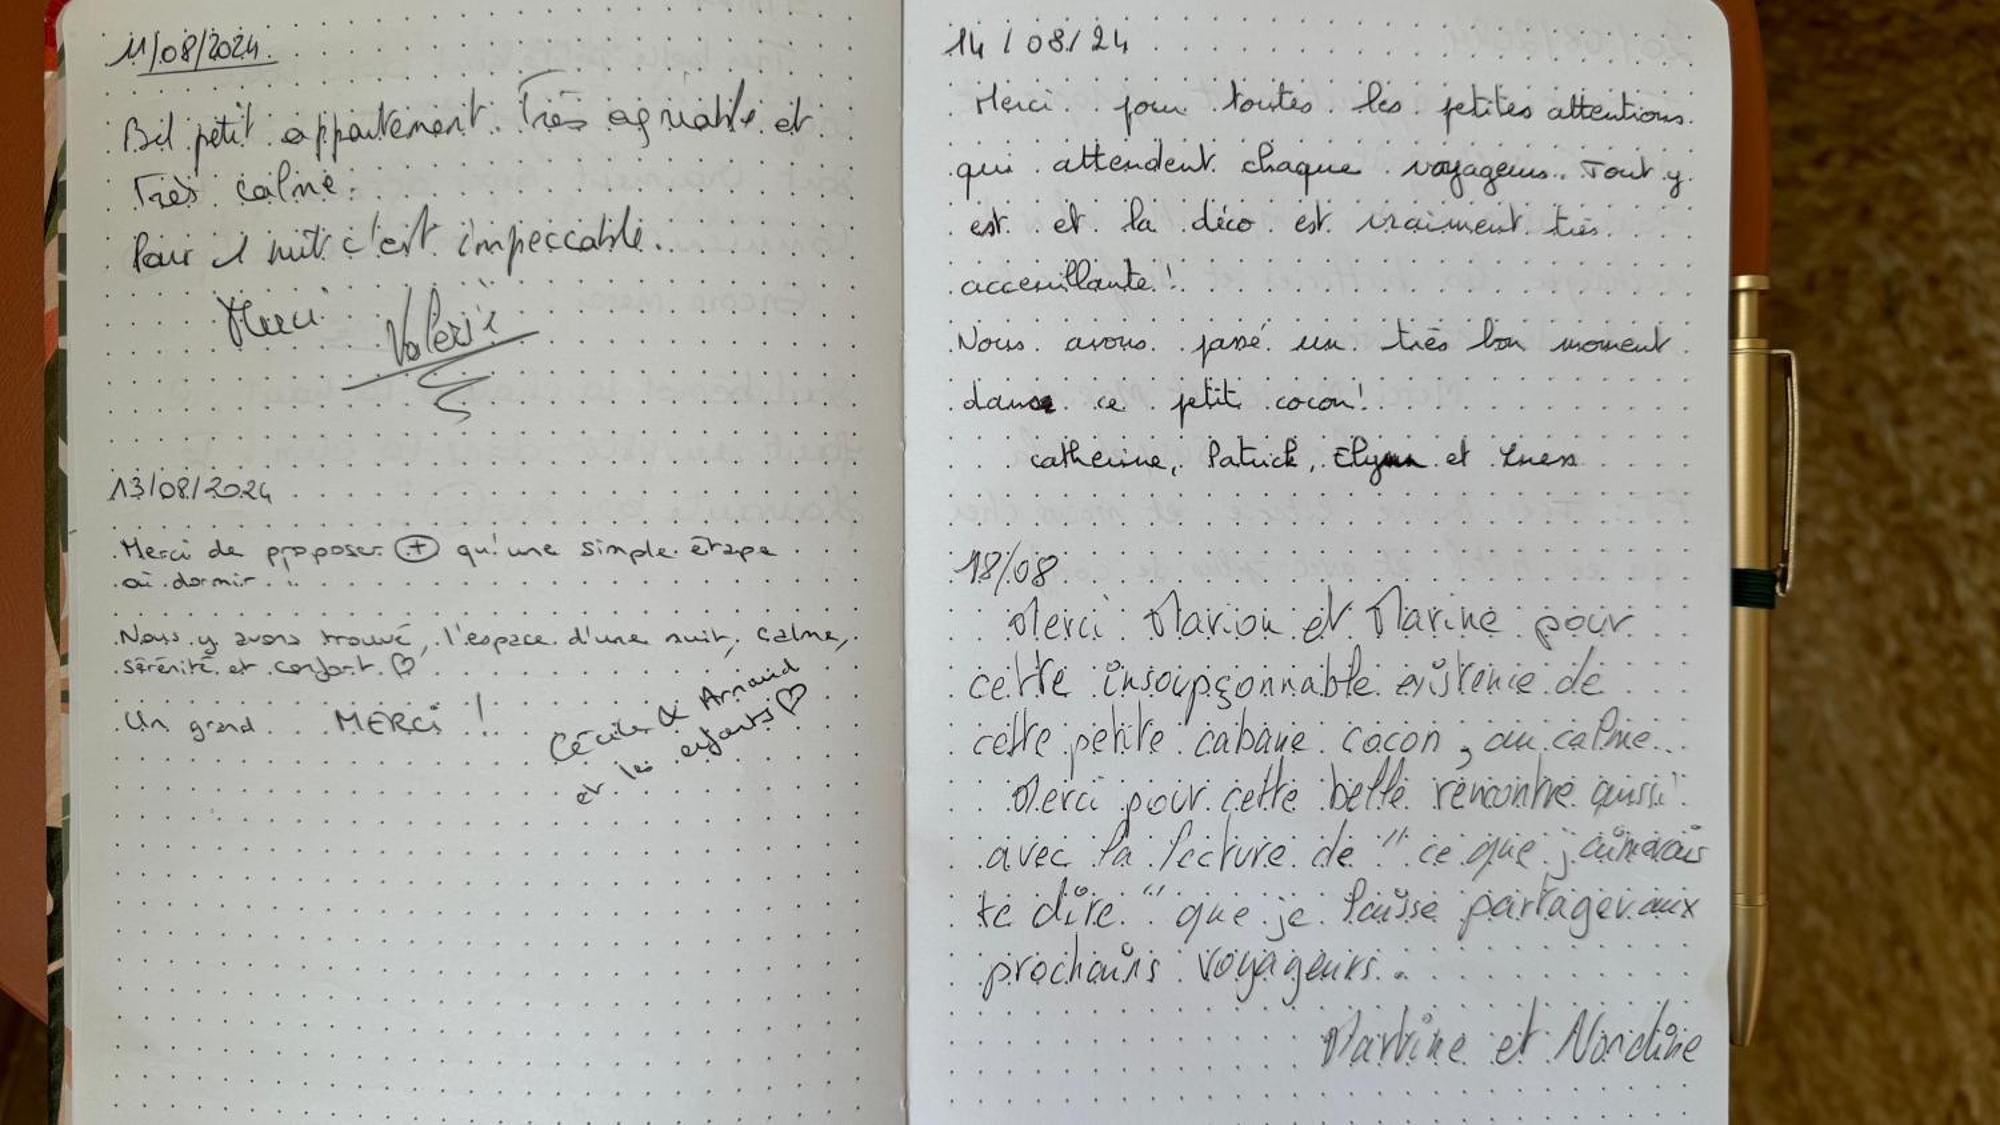 11/08/2024.
Bel petit appartement. Très agréable et
Très calme.
Pour 1 nuit c'est impeccable.
Merci Valérie
13/08/2024
Merci de proposer + qu'une simple étape
où dormir...
Nous y avons trouvé, l'espace d'une nuit, calme,
sérénité et confort. ♡
Un grand MERCi !
Cécile & Arnaud
et les enfants ♡
14/08/24
Merci pour toutes les petites attentions
qui attendent chaque voyageurs. Tout y
est et la déco est vraiment très
acceuillante !
Nous avons passé un très bon moment
dans ce petit cocon !
Catherine, Patrick, et Ines
18/08
Merci Marion et Marine pour
cette insoupçonnable existence de
cette petite cabane cocon, au calme...
Merci pour cette belle rencontre aussi
avec la lecture de "ce que j'aimerais
te dire" que je laisse partager aux
prochains voyageurs..
Martine et Nordine